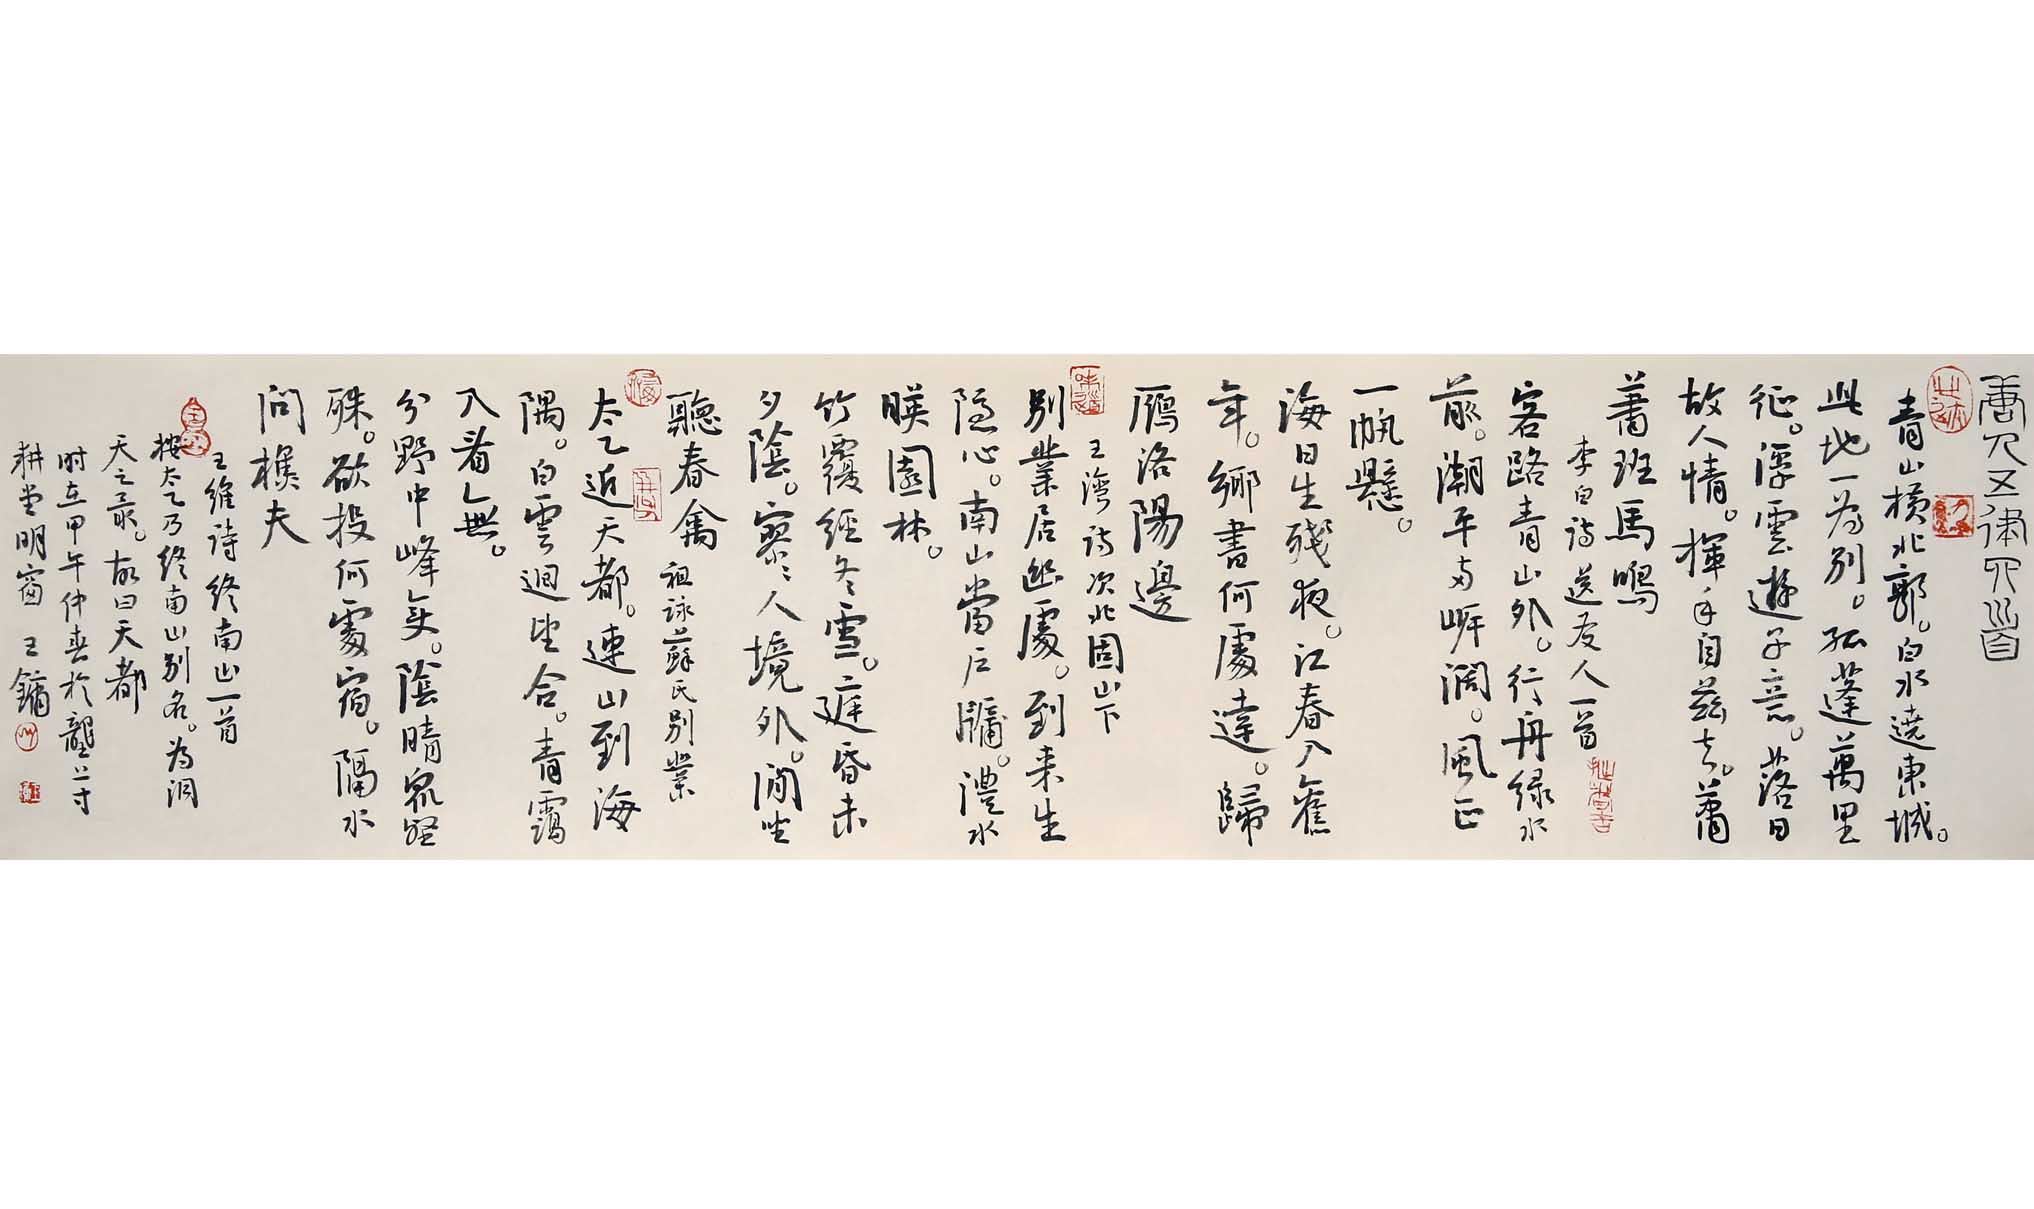 唐人五律四首
青山橫北郭。白水遶東城。
此地一為別。孤蓬萬里
征。浮雲遊子意。落日
故人情。揮手自茲去。蕭
蕭班馬鳴
李白詩送友人一首
客路青山外。行舟綠水
前。潮平兩岸闊。風正
一帆懸。
海日生殘夜。江春入舊
年。鄉書何處達。歸
雁洛陽邊
王灣詩次北固山下
別業居幽處。到来生
隱心。南山當户牖。澧水
暎園林。
竹覆經冬雪。庭昏未
夕陰。寥寥人境外。閒坐
聽春禽
祖詠蘇氏別業
太乙近天都。連山到海
隅。白雲迴望合。青靄
入看看無。
分野中峰變。陰晴眾壑
殊。欲投何處宿。隔水
問樵夫
王維詩終南山一首
按太乙乃終南山別名。為洞
天之最。故曰天都
时在甲午仲春於
耕堂明窗 王鏞